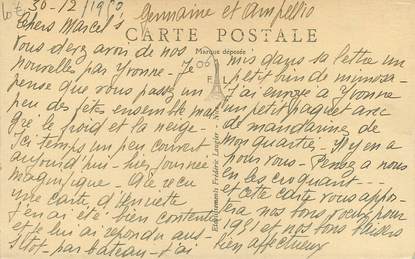 30-12/1950
Germaine et Ampellio
Chers Marcel's
CARTE POSTALE
Marque déposée
Vous devez avoir de nos
nouvelles par Yvonne - Je
pense que vous passez un
peu des fêtes ensemble mal
gré le froid et la neige -
Ici temps un peu couvert
aujourd'hui - hier journée
magnifique - Ai reçu
une carte d'
J'en ai été bien contente
et je lui ai répondu aus-
sitôt - par bateau - J'ai
Etablissements Frédéric Laugier
mis dans sa lettre un
petit brin de mimosa -
J'ai envoyé à Yvonne
un petit paquet avec
de mandarines de
mon quartier. Il y en a
pour vous - Pensez à nous
en les croquant ---
et cette carte vous appor-
tera nos bons voeux pour
1951 et nos bons baisers
bien affectueux